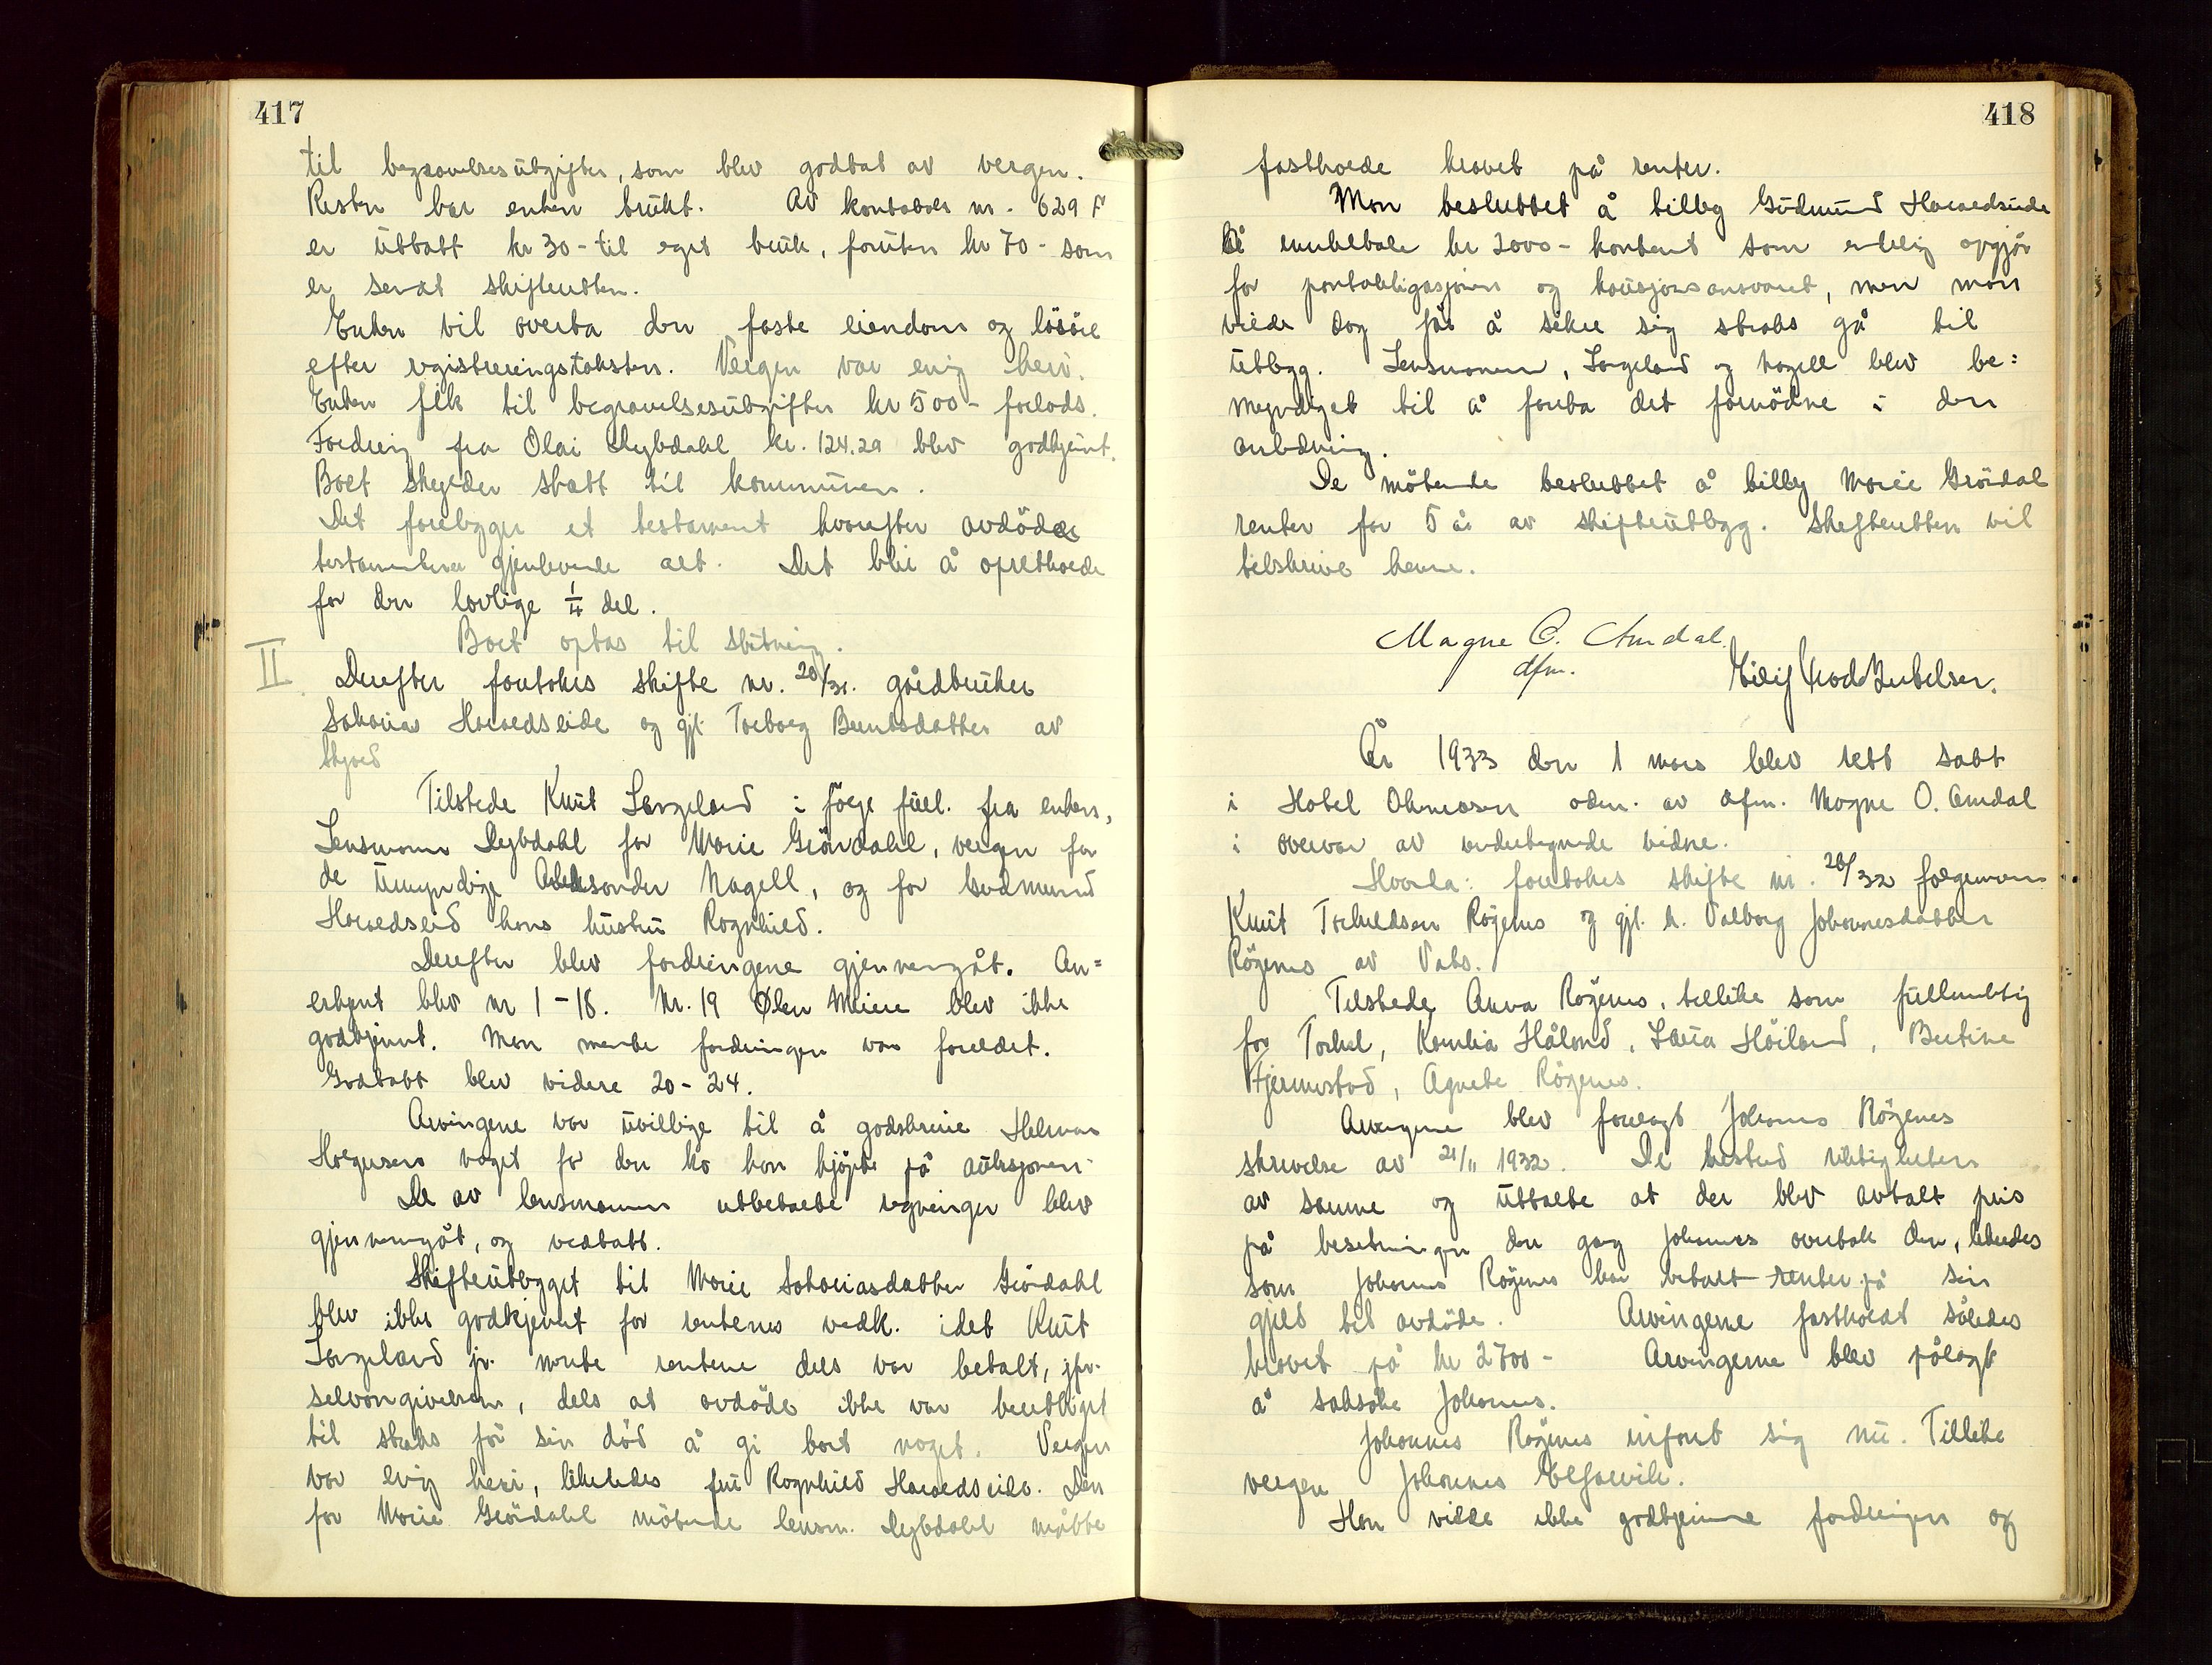 417
til begravelsesutgifter, som blev godtat av vergen.
Resten har enken brukt. Av kontobok nr. 629 F
er uttatt kr 30 - til eget bruk, foruten kr 70 - som
er sendt skifteretten.
Enken vil overta den faste eiendom og lösöre
efter registreringstaksten. Vergen var enig heri.
Enken fik til begravelsesutgifter kr 500 - forlods.
Fordring fra Olai Dybdahl kr. 124.29 blev godkjent.
Boet skylder skatt til kommunen.
Det foreligger et testament hvorefter avdöde
testamenterer gjenlevende alt. Det blir å oprettholde
for den lovlige 1/4 del.
Boet optas til slutning.
II Derefter foretokes skifte nr. 20/31. gårdbruker
Sakarias Haraldseide og gjl. Torborg Berntsdatter av
Skjold
Tilstede Knut Langeland i følge full. fra enken,
Lensmann Dybdahl for Marie Gröndahl, vergen for
de umyndige Aleksander Nagell, og for Gudmund
Haraldseid hans hustru Ragnhild.
Derefter blev fordringene gjennemgåt. An=
erkjent blev nr 1 - 18. Nr. 19 Ølen Meieri blev ikke
godkjent. Man mente fordringen var foreldet.
Godtatt blev videre 20 - 24.
Arvingene var uvillige til å godskrive Helmar
Halgersen noget for den ko han kjøpte på auksjonen.
De av lensmannen utbetalte regninger blev
gjennemgåt, og vedtatt.
Skifteutlegget til Marie Sakariasdatter Gröndahl
blev ikke godkjent for rentenes vedk. idet Knut
Langeland jr. mente rentene dels var betalt, jfr.
selvangivelsen, dels at avdöde ikke var berettiget
til straks för sin död å gi bort noget. Vergen
var enig heri, likeledes fru Ragnhild Haraldseide. Den
for Marie Gröndahl mötende lensm. Dybdahl måtte
418
fastholde kravet på renter.
Man besluttet å tilby Gudmund Haraldseide
å innbetale kr 2000 - kontant som endelig opgjör
for pantobligasjonen og kausjonsansvaret, men man
vilde dog för å sikre sig straks gå til
utlegg. Lensmannen, Langeland og Nagell blev be=
myndiget til å foreta det fornödne i den
anledning.
De mötende besluttet å tilby Marie Gröndal
renter for 5 år av skifteutlegg. Skifteretten vil
tilskrive henne.
Magne O. Amdal
dfm.
År 1933 den 1 mars blev rett satt
i Hotel adm. av dfm. Magne O. Amdal
i overvær av undertegnede vidne.
Hvorda: foretokes skifte nr. 20/32
Knut Torkeldsen Röyenes og gjl. h. Valborg Johannesdatter
Röyenes av Vats.
Tilstede Anna Röyenes, tillike som fullmektig
for Torkel, Kornelia Håland, Laura Höiland, Bertine
Fjermestad, Agnete Röyenes.
Arvingene blev forelagt Johannes Röyenes
skrivelse av 21/11 1932. De bestred riktigheten
av samme og uttalte at der blev avtalt pris
på besetningen den gang Johannes overtok den, likeledes
som Johannes Röyenes har betalt renter på sin
gjeld til avdöde. Arvingene fastholdt således
kravet på kr 2700 - Arvingerne blev pålagt
å saksöke Johannes.
Johannes Röyenes innfant sig nu. Tillike
vergen Johannes
Han vilde ikke godkjenne fordringen og